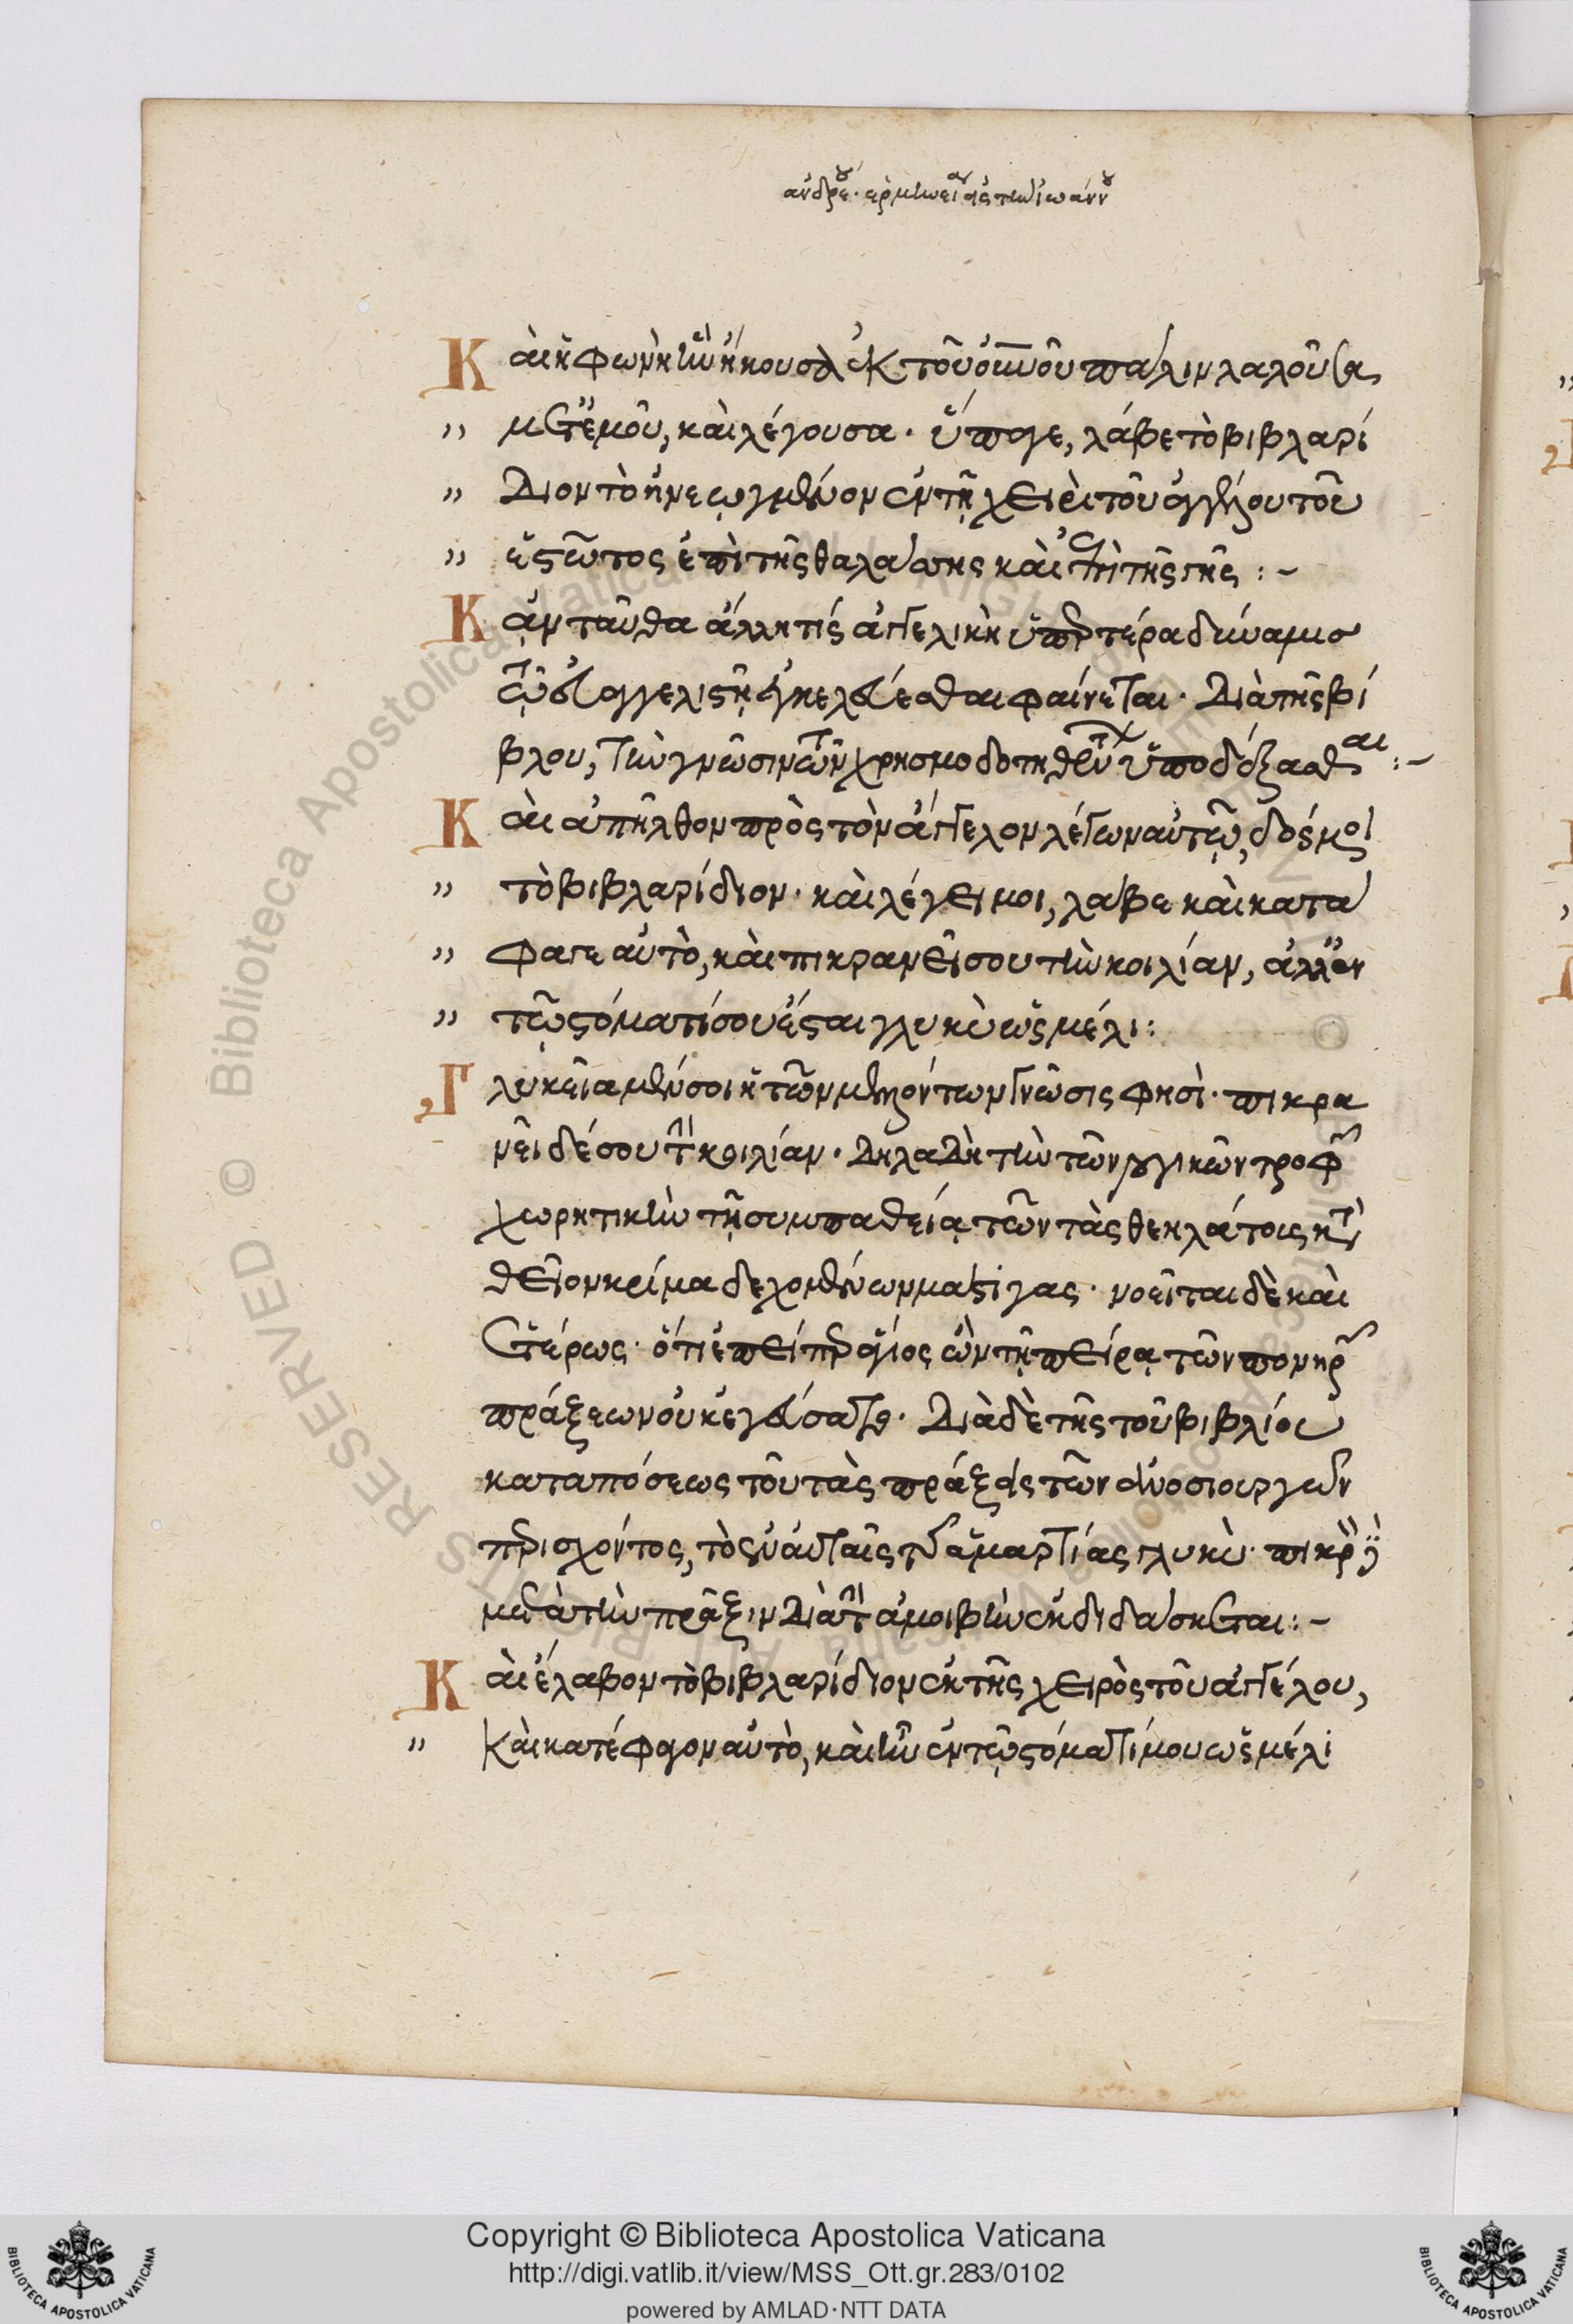 ἀνδρέου ἑρμηνεία εἰς τὴν ἰωάννου
Καὶ ἡ φωνὴ ἣν ἤκουσα ἐκ τοῦ οὐνοῦ πάλιν λαλοῦσα
" μετ' ἐμοῦ, καὶ λέγουσα· ὕπαγε, λάβε τὸ βιβλαρί
" διον τὸ ἠνεῳγμένον ἐν τῇ χειρὶ τοῦ ἀγγέλου τοῦ
" ἑστῶτος ἐπὶ τῆς θαλάσσης καὶ ἐπὶ τῆς γῆς :-
Κἀνταῦθα ἄλλη τίς ἀγγελικὴ ὑπερτέρα δύναμισ
τῷ εὐαγγελιστῇ ἐγκελεύεσθαι φαίνεται· διὰ τῆς βί
βλου, τὴν γνῶσιν τῶν χρησμοδοτηθέντων ὑποδέξασθαι :-
Καὶ ἀπῆλθον πρὸς τὸν ἄγγελον λέγων αὐτῷ, δός μοι
" τὸ βιβλαρίδιον· καὶ λέγει μοι, λάβε καὶ κατά
" φαγε αὐτὸ, καὶ πικρανεῖ σου τὴν κοιλίαν, ἀλλ' ἐν
" τῷ στόματί σου ἔσται γλυκὺ ὡς μέλι :
Γλυκεῖα μέν σοι ἡ τῶν μελλόντων γνῶσις φησὶ· πικρα
νεῖ δέ σου τὴν κοιλίαν· δηλαδὴ τὴν τῶν λογικῶν τροφῶν
χωρητικὴν τῇ συμπαθείᾳ τῶν τὰς θεηλάτους κατὰ
θεῖον κρίμα δεχομένων μάστιγας· νοεῖται δὲ καὶ
ἑτέρως· ὅτι ἐπείπερ ἅγιος ὢν τῇ πείρᾳ τῶν πονηρῶν
πράξεων οὐκ ἐγεύσατο· διὰ δὲ τῆς τοῦ βιβλίου
καταπόσεως τοῦ τὰς πράξεις τῶν ἀνοσιουργῶν
περισχόντος, τὸ ἐν αὐταῖς τῆς ἁμαρτίας γλυκὺ· πικρὸν
μετὰ τὴν πρᾶξιν διὰ τὴν ἀμοιβὴν ἐκδιδάσκεται :-
Καὶ ἔλαβον τὸ βιβλαρίδιον ἐκ τῆς χειρὸς τοῦ ἀγγέλου,
" καὶ κατέφαγον αὐτὸ, καὶ ἦν ἐν τῷ στόματί μου ὡς μέλι
Copyright © Biblioteca Apostolica Vaticana
http://digi.vatlib.it/view/MSS_Ott.gr.283/0102
powered by AMLAD·NTT DATA